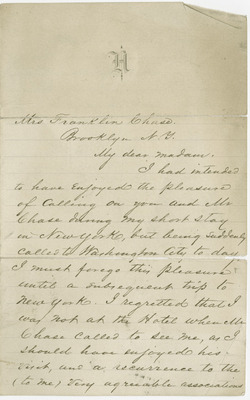 Mrs Franklin Chase.
Brooklyn N.Y.
My dear madam.
I had intended
to have enjoyed the pleasure
of calling on you and Mr
Chase during my short stay
in New York, but being suddenly
called to Washington City to day
I must forego this pleasure
until a subsequent trip to
New York. I regretted that I
was not at the Hotel when Mr
Chase called to see me, as I
should have enjoyed his
visit, and a recurrence to the
(to me) very agreeable associations